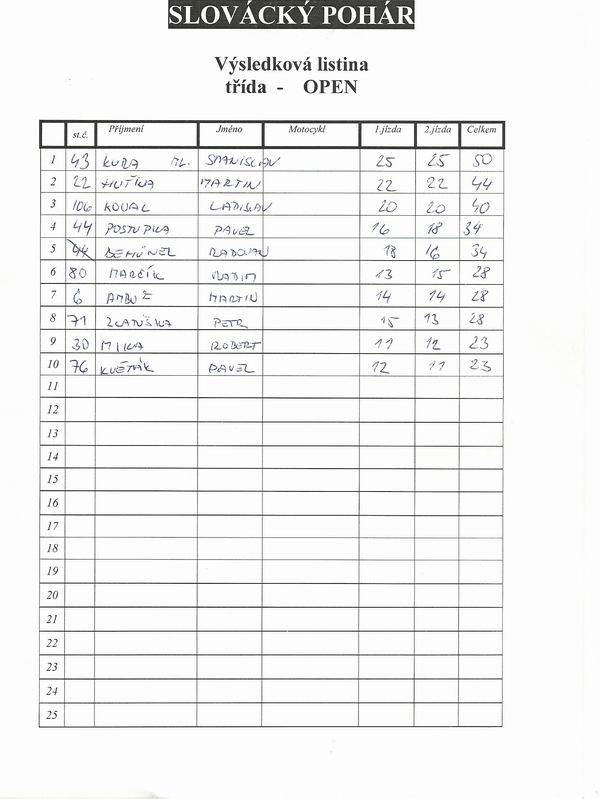 SLOVÁCKÝ POHÁR
Výsledková listina
třída - OPEN
st.č. Příjmení Jméno Motocykl 1.jízda 2.jízda Celkem
1 43 KURA ML. STANISLAV 25 25 50
2 22 HUŤKA MARTIN 22 22 44
3 106 KOVAL LADISLAV 20 20 40
4 44 POSTUPKA PAVEL 16 18 34
5 RADOVAN 18 16 34
6 80 MARČÍK RADIM 13 15 28
7 6 AMBUŽ MARTIN 14 14 28
8 71 ZLATUŠKA PETR 15 13 28
9 30 MIKA ROBERT 11 12 23
10 76 KVĚŤÁK PAVEL 12 11 23
11
12
13
14
15
16
17
18
19
20
21
22
23
24
25